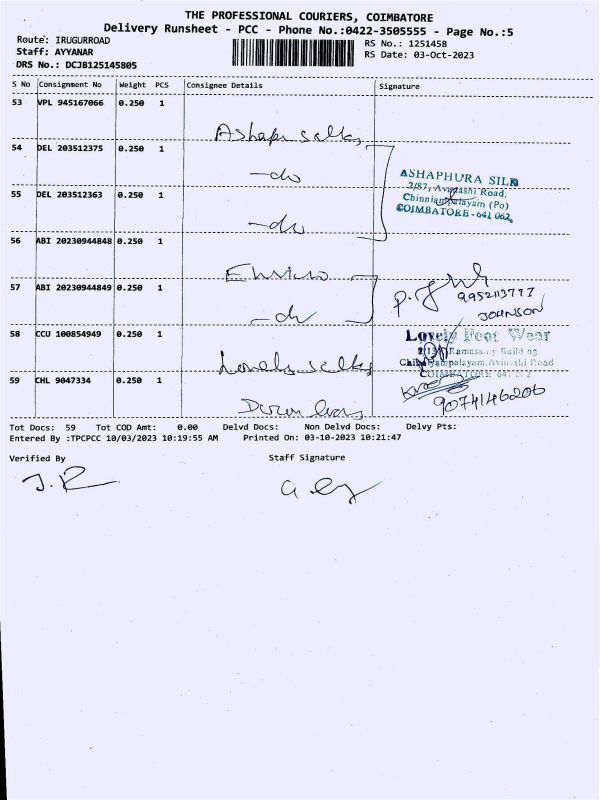 THE PROFESSIONAL COURIERS, COIMBATORE
Delivery Runsheet - PCC - Phone No.:0422-3505555 - Page No.:5
Route: IRUGURROAD
RS No.: 1251458
Staff: AYYANAR
RS Date: 03-Oct-2023
DRS No.: DCJB125145805
S No Consignment No Weight PCS Consignee Details Signature
53 VPL 945167066 0.250 1
54 DEL 203512375 0.250 1 -do
ASHAPHURA SILK
2/87, Avinashi Road,
Chinniampalayam (Po)
COIMBATORE - 641 062.
55 DEL 203512363 0.250 1 -do
56 ABI 20230944848 0.250 1
57 ABI 20230944849 0.250 1 -do
9952113777
JOHNSON
58 CCU 100854949 0.250 1 Lovely silks
Lovely Foot Wear
Ramasamy Building
Chinniyampalayam, Avinashi Road
59 CHL 9047334 0.250 1
9074146206
Tot Docs: 59 Tot COD Amt: 0.00 Delvd Docs: Non Delvd Docs: Delvy Pts:
Entered By :TPCPCC 10/03/2023 10:19:55 AM Printed On: 03-10-2023 10:21:47
Verified By Staff Signature